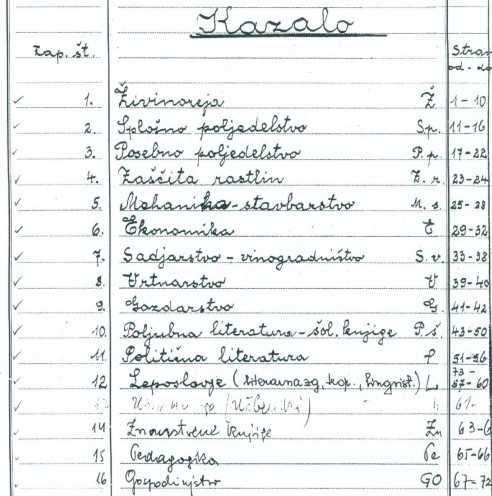 Kazalo
Zap. št. Stran od - do
✓ 1. Živinoreja Ž 1-10
✓ 2. Splošno poljedelstvo Sp. 11-16
✓ 3. Posebno poljedelstvo P.p. 17-22
✓ 4. Zaščita rastlin Z.r. 23-24
✓ 5. Mehanika - stavbarstvo M.s. 25-28
✓ 6. Ekonomika E 29-32
✓ 7. Sadjarstvo - vinogradništvo S.v. 33-38
✓ 8. Vrtnarstvo V 39-40
✓ 9. Gozdarstvo G. 41-42
✓ 10. Poljubna literatura - šol. knjige P.š. 43-50
✓ 11. Politična literatura P 51-56
✓ 12 Leposlovje ( ) L 73- 57-60
✓ 13 61-
✓ 14 Znanstvene knjige Zn 63-6
✓ 15 Pedagogika Pe 65-66
✓ 16 Gospodinjstvo GO 67-72